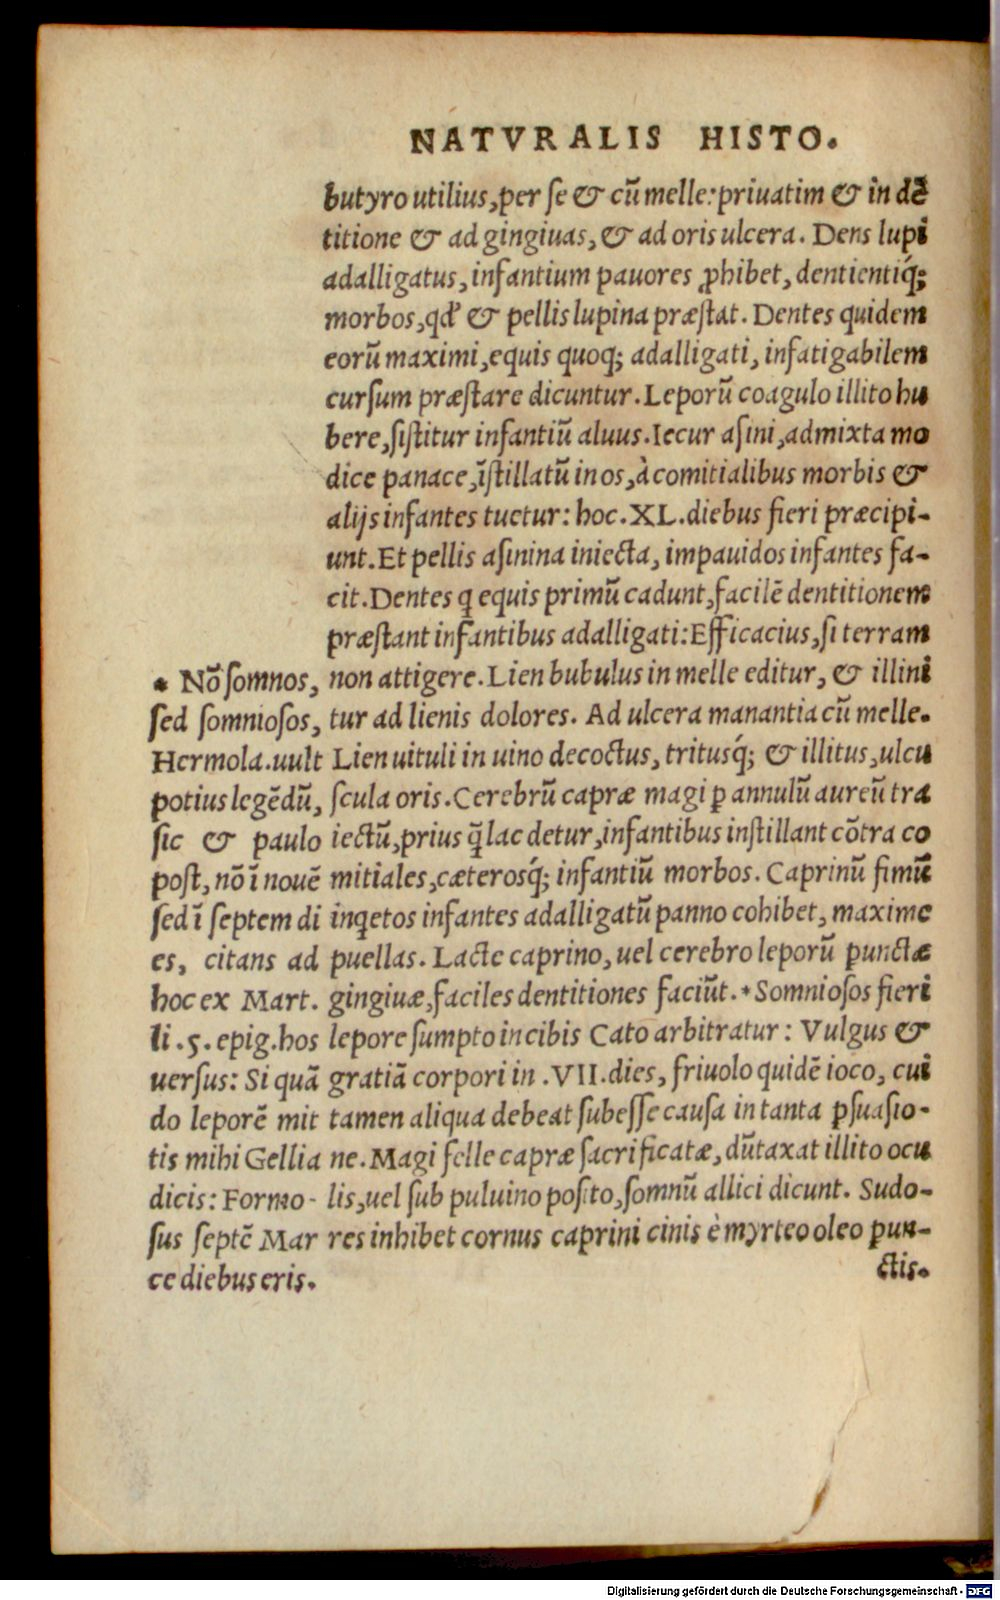 NATVRALIS HISTO.
butyro utilius, per se & cũ melle: priuatim & in dẽ
titione & ad gingiuas, & ad oris ulcera. Dens lupi
adalligatus, infantium pauores ꝓhibet, dentientiq́;
morbos, qđ & pellis lupina præstat. Dentes quidem
eorũ maximi, equis quoq; adalligati, infatigabilem
cursum præstare dicuntur. Leporũ coagulo illito hu
bere, sistitur infantiũ aluus. Iecur asini, admixta mo
dice panace, ĩstillatũ in os, à comitialibus morbis &
alijs infantes tuetur: hoc .XL. diebus fieri præcipi-
unt. Et pellis asinina iniecta, impauidos infantes fa-
cit. Dentes q equis primũ cadunt, facilẽ dentitionem
præstant infantibus adalligati: Efficacius, si terram
non attigere. Lien bubulus in melle editur, & illini
tur ad lienis dolores. Ad ulcera manantia cũ melle.
Lien uituli in uino decoctus, tritusq́; & illitus, ulcu
scula oris. Cerebrũ capræ magi ꝑ annulũ aureũ tra
iectũ, prius q̃ lac detur, infantibus instillant cõtra co
mitiales, cæterosq́; infantiũ morbos. Caprinũ fimũ
inqetos infantes adalligatũ panno cohibet, maxime
puellas. Lacte caprino, uel cerebro leporũ punctæ
gingiuæ, faciles dentitiones faciũt. *Somniosos fieri
lepore sumpto in cibis Cato arbitratur: Vulgus &
gratiã corpori in .VII. dies, friuolo quidẽ ioco, cui
tamen aliqua debeat subesse causa in tanta ꝑsuasio-
ne. Magi felle capræ sacrificatæ, dũtaxat illito ocu
lis, uel sub puluino posito, somnũ allici dicunt. Sudo-
res inhibet cornus caprini cinis è myrteo oleo pun-
ctis.
* Nõ somnos,
sed somniosos,
Hermola. uult
potius legẽdũ,
sic & paulo
post, nõ ĩ nouẽ
sed ĩ septem di
es, citans ad
hoc ex Mart.
li .5. epig. hos
uersus: Si quã
do leporẽ mit
tis mihi Gellia
dicis: Formo-
sus septẽ Mar
ce diebus eris.
Digitalisierung gefördert durch die Deutsche Forschungsgemeinschaft - DFG